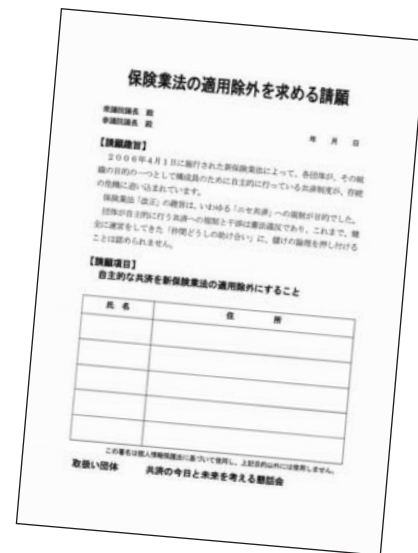 保険業法の適用除外を求める請願
衆議院議長 殿
参議院議長 殿
年 月 日
【請願趣旨】
2006年4月1日に施行された新保険業法によって、各団体が、その組
織の目的の一つとして構成員のために自主的に行っている共済制度が、存続
の危機に追い込まれています。
保険業法「改正」の趣旨は、いわゆる「ニセ共済」への規制が目的でした。
団体が自主的に行う共済への規制と干渉は憲法違反であり、これまで、健
全に運営をしてきた「仲間どうしの助け合い」に、儲けの論理を押し付ける
ことは認められません。
【請願項目】
自主的な共済を新保険業法の適用除外にすること
氏 名 住 所
この署名は個人情報保護法に基づいて使用し、上記目的以外には使用しません。
取扱い団体 共済の今日と未来を考える懇話会